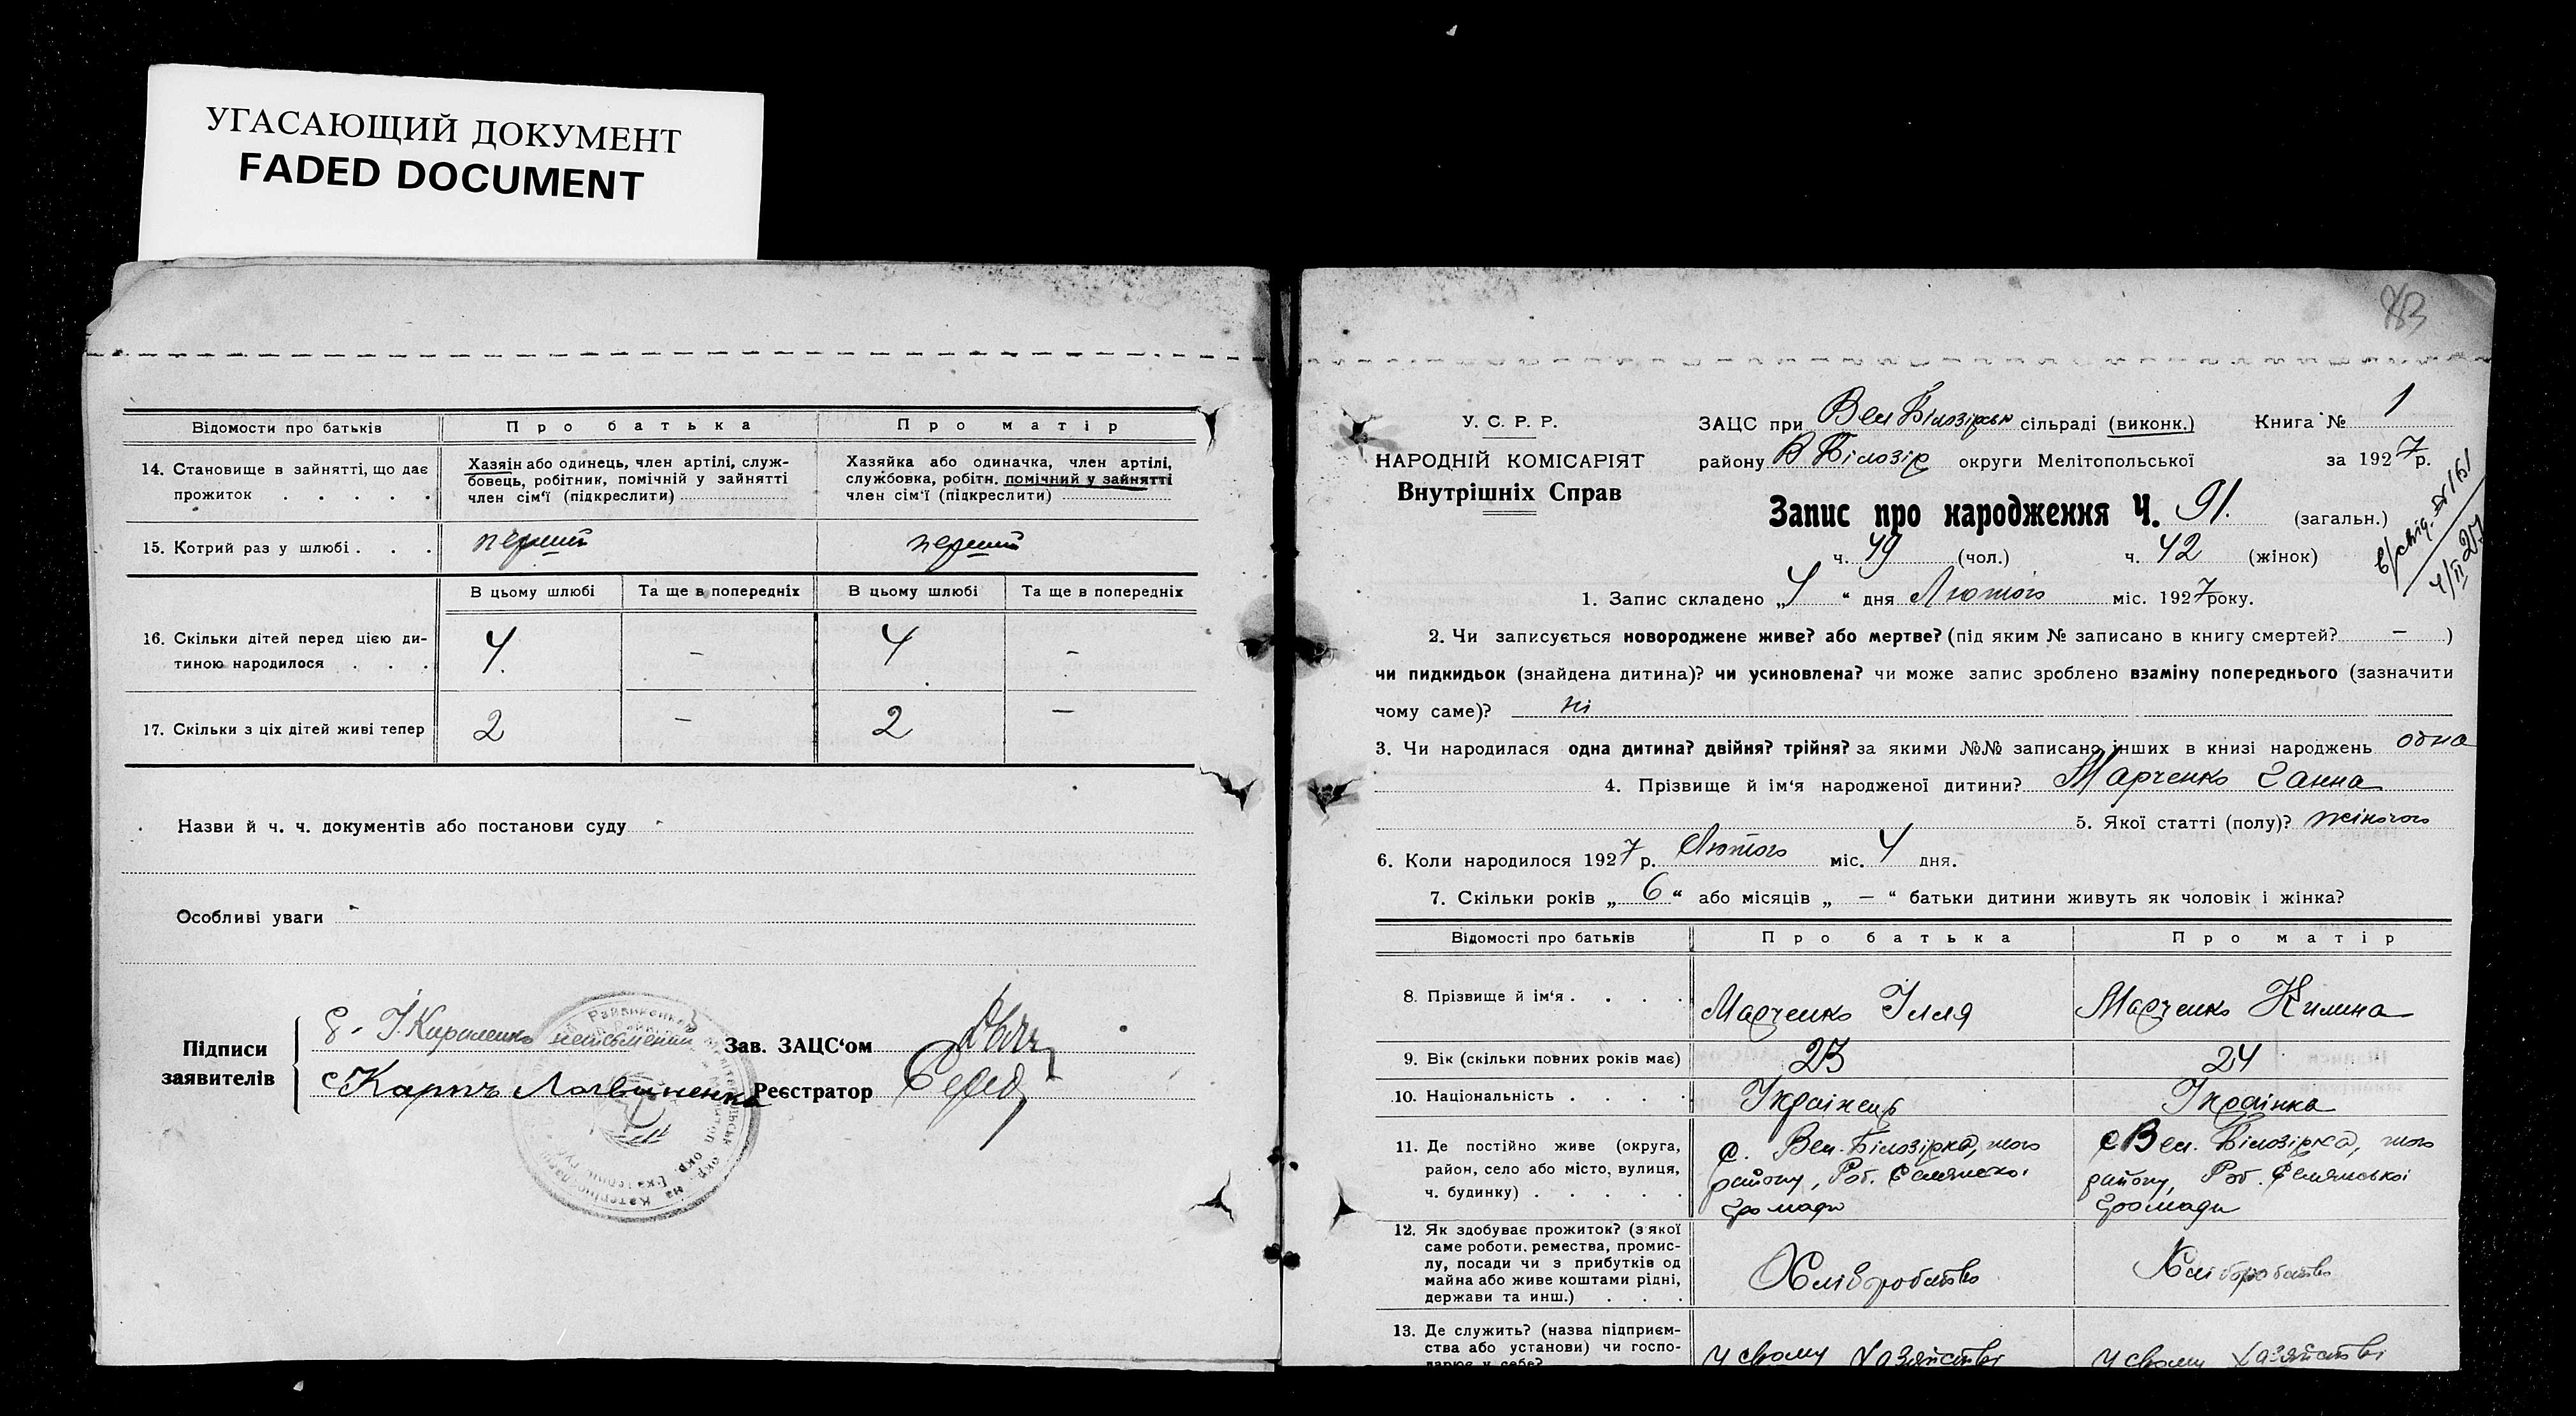 УГАСАЮЩИЙ ДОКУМЕНТ
FADED DOCUMENT
Відомости про батьків
Про батька
Про матір
14. Становище в зайнятті, що дає
прожиток . . . . .
Хазяін або одинець, член артілі, служ-
бовець, робітник, помічній у зайнятті
член сім'ї (підкреслити)
Хазяйка або одиначка, член артілі,
службовка, робітн. помічний у зайнятті
член сім'ї (підкреслити)
15. Котрий раз у шлюбі . . .
перший
перший
В цьому шлюбі
Та ще в попередніх
В цьому шлюбі
Та ще в попередніх
16. Скільки дітей перед цією ди-
тиною народилося . . .
4
–
4
–
17. Скільки з ціх дітей живі тепер
2
–
2
–
Назви й ч. ч. документів або постанови суду
Особливі уваги
Підписи
заявителів
неписьменни
Карпъ Логвиненко
Зав. ЗАЦС'ом
Реєстратор
83
У. С. Р. Р.
НАРОДНІЙ КОМІСАРІЯТ
Внутрішніх Справ
ЗАЦС при Вел Білозірськ сільраді (виконк.)
Книга № 1
району В Білозір округи Мелітопольської
за 1927р.
Запис про народження Ч. 91. (загальн.)
ч. 49 (чол.) ч. 42 (жінок)
4/II 27
1. Запис складено „4“ дня Лютого міс. 1927року.
2. Чи записується новороджене живе? або мертве? (під яким № записано в книгу смертей? – )
чи пидкидьок (знайдена дитина)? чи усиновлена? чи може запис зроблено взаміну попереднього (зазначити
чому саме)? ні
3. Чи народилася одна дитина? двійня? трійня? за якими №№ записано інших в книзі народжень одна
4. Прізвище й ім'я народженої дитини? Марченко Ганна
5. Якої статті (полу)? жіночого
6. Коли народилося 1927 р. Лютого міс. 4 дня.
7. Скільки років „6“ або місяців „ – “ батьки дитини живуть як чоловік і жінка?
Відомості про батьків
Про батька
Про матір
8. Прізвище й ім'я . . . .
Марченко Ілля
Марченко Килина
9. Вік (скільки повних років має)
23
24
10. Національність . . . .
Українець
Українка
11. Де постійно живе (округа,
район, село або місто, вулиця,
ч. будинку) . . . . .
с. Вел. Білозірка, того
району, Роб. Селянської
громади
с Вел. Білозірка, того
району, Роб. Селянської
громади
12. Як здобуває прожиток? (з якої
саме роботи. ремества, промис-
лу, посади чи з прибутків од
майна або живе коштами рідні,
держави та инш.) . . .
Хліборобство
Хліборобство
13. Де служить? (назва підприєм-
ства або установи) чи госпо-
дарює у себе?
У свому хазяйстві
У свому хазяйстві